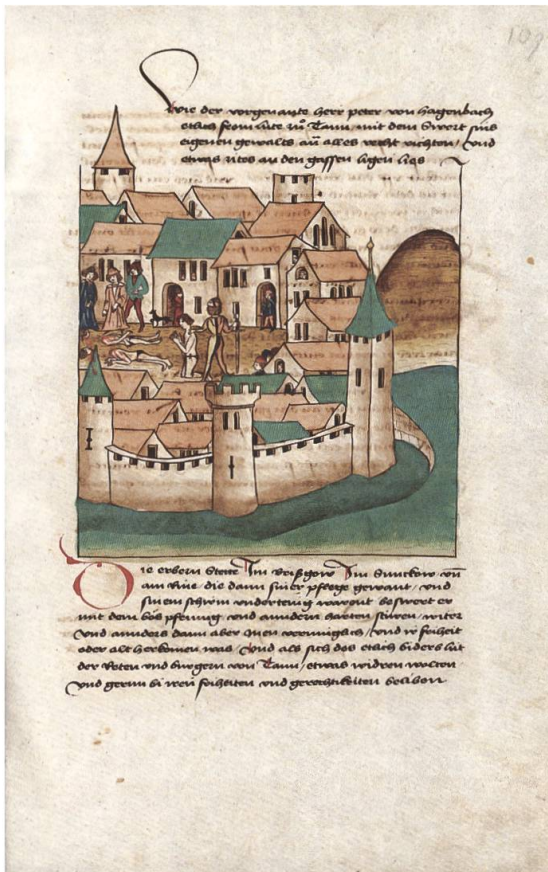 109
Wie der vorgenante herr peter von hagenbach
etlich from lüte zů Tann mit dem Swert sins
eigenen gewalts an alles recht richten / Vnd
etwas zites an den gassen ligen lies
Die erbern Stette Im brißgow Im Suntkow vñ
am Rine die dann siner pflege gewant / vnd
sinem schirm vndertenig warent beswert er
mit dem bös pfennig vnd anndern harten stüren / witer
Vnd annders dann aber Inen / vnd ir friheit
oder alt herkomen was / Vnd als sich des etlich biders lüt
der Reten vnd burgern von Tann / etwas widren wolten
vnd gernn bi iren friheiten vnd gerechtikeiten beliben